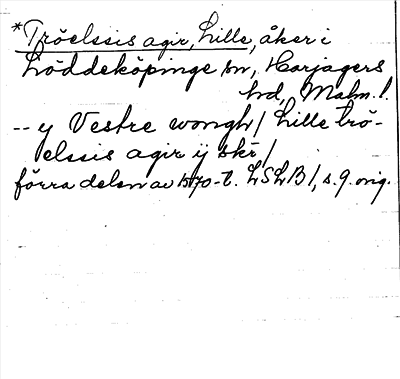 *Tröelssis agir, Lille, åker i
Löddeköpinge sn, Harjagers
hd, Malm. l.
-- y Vestre wongh / Lille trö-
elssis agir ij skr /
förra delen av 1570-t. LSLB 1, s. 9. orig.